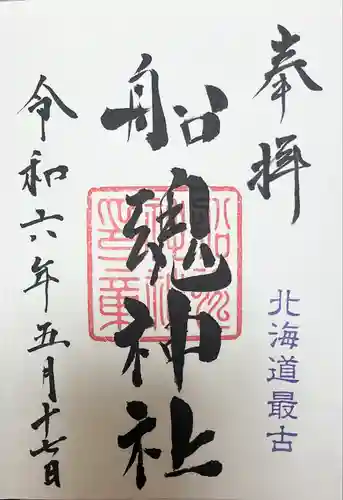 奉拝
北海道最古
船魂神社
令和六年五月十七日